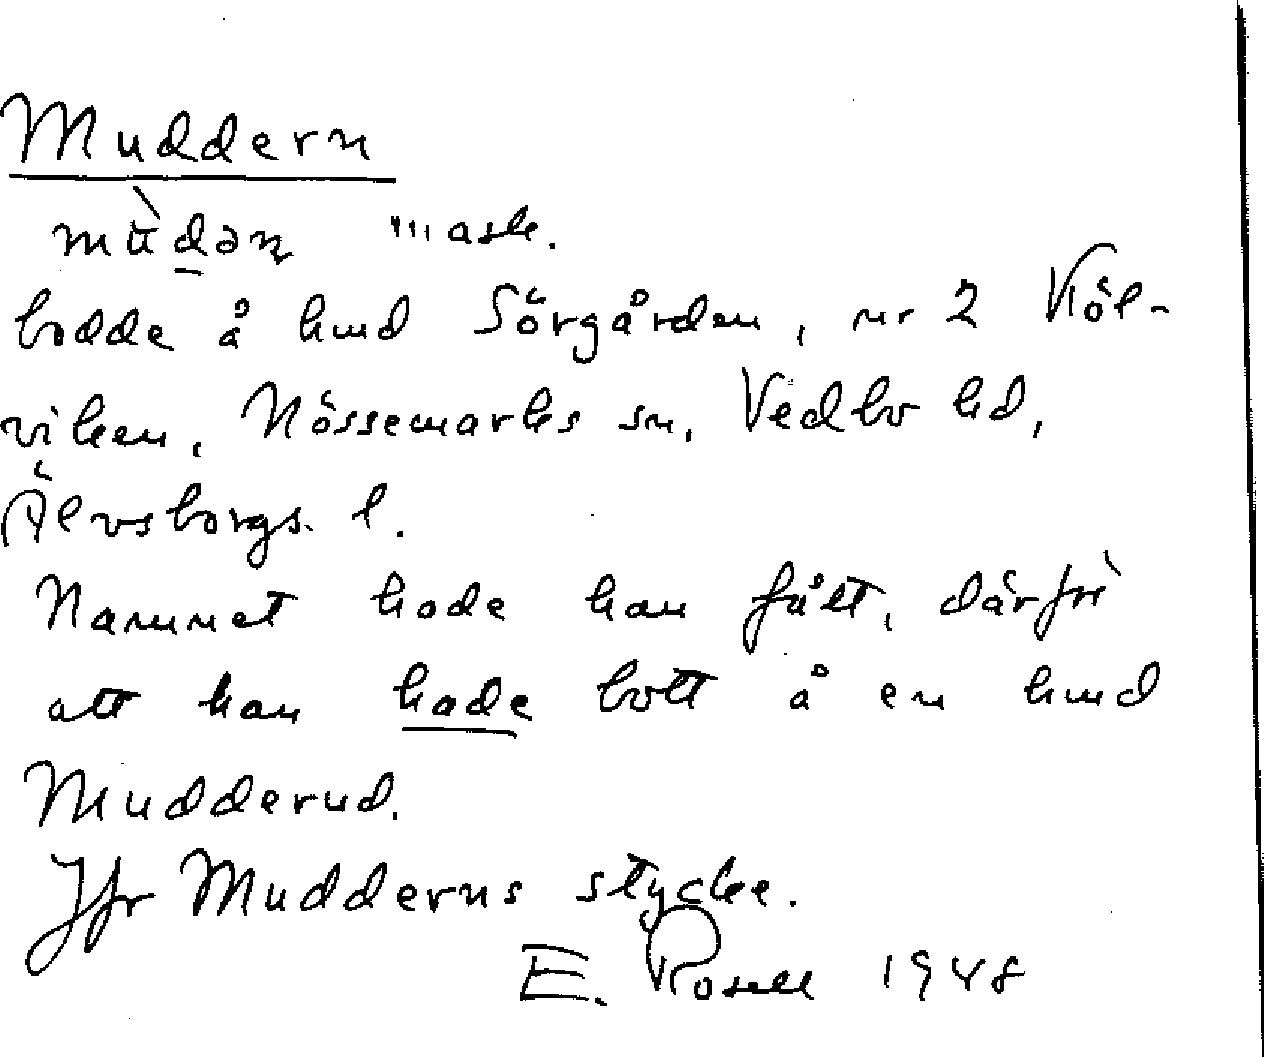 Muddern
mùdəṇ mask.
bodde å hmd Sörgården, nr 2 Köl-
viken, Nössemarks sn, Vedbo hd,
Älvsborgs l.
Namnet hade han fått, därför
att han hade bott å en hmd
Mudderud.
Jfr Mudderns stycke.
E. Rosell 1948